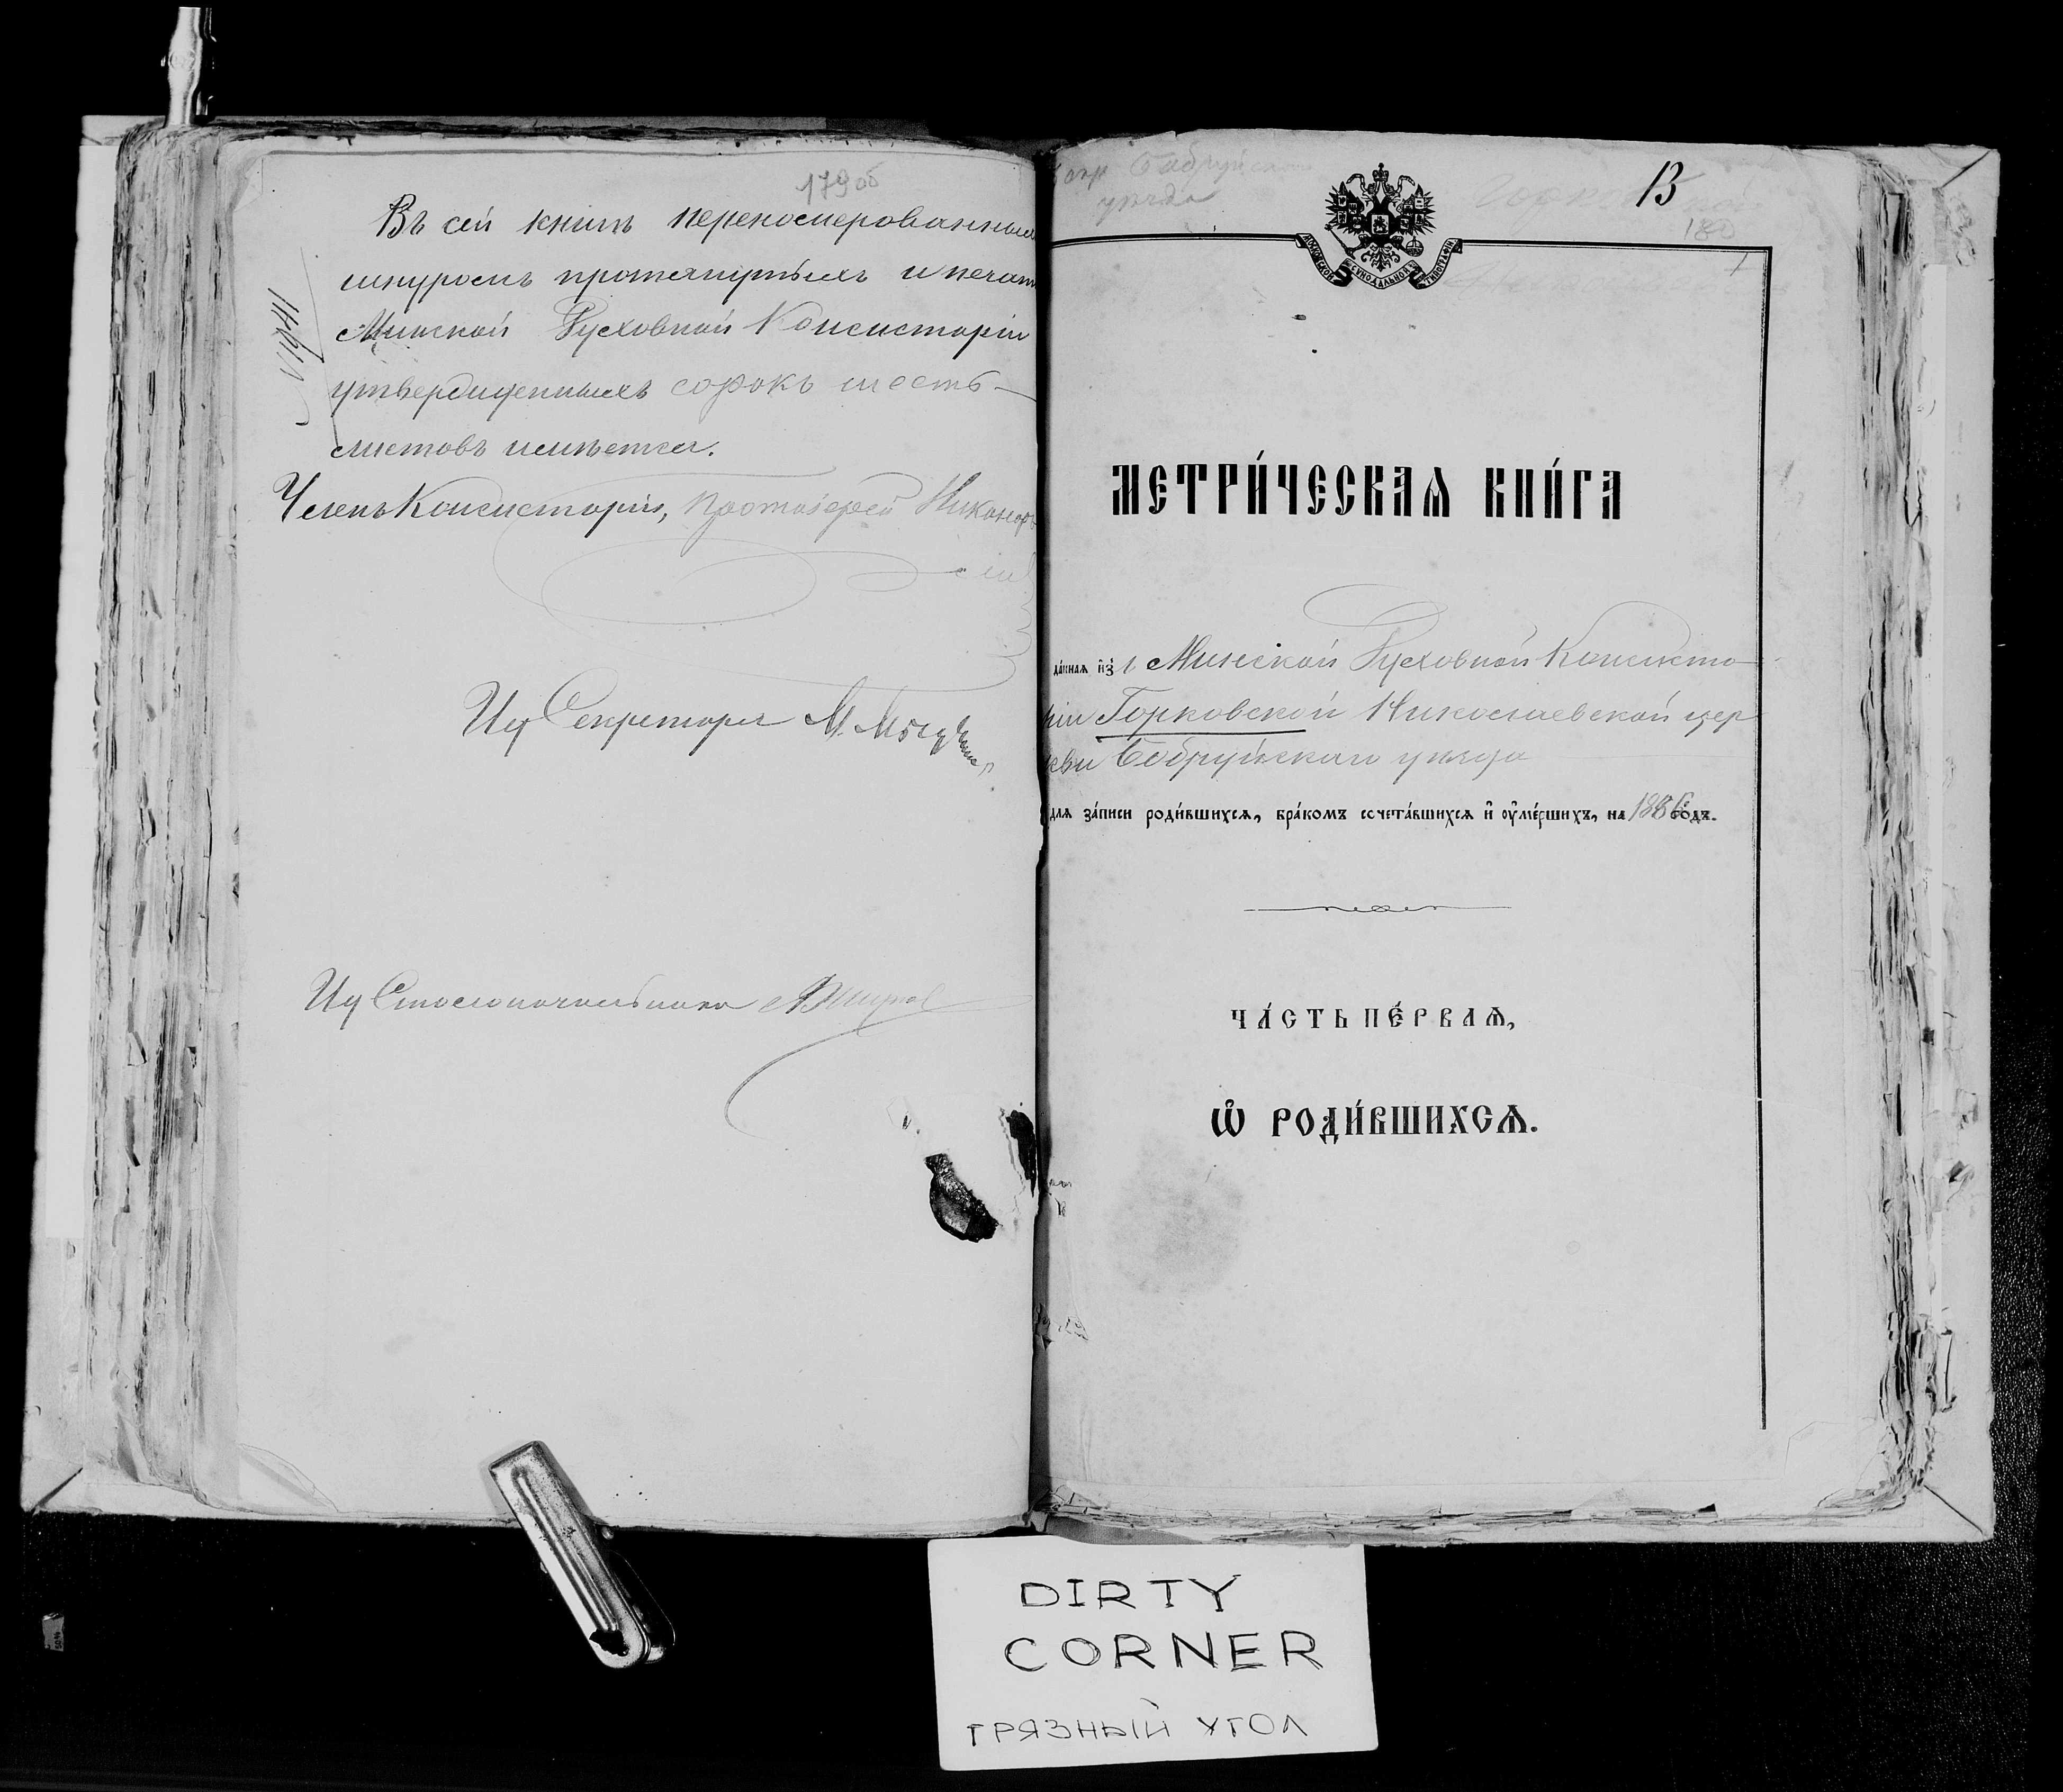 179 об
Въ сей книгѣ перенумерованныхъ
шнуромъ протянутыхъ и печатью
Минской Духовной Консисторіи
утвержденныхъ сорокъ шесть
листовъ имѣется.
Членъ Консисторіи, Протоіерей Никаноръ
Ид Секретаря М.
Ид Столоначальника
Бобруйскаго
уѣзда
13
180
1
МОСКОВСКОЙ СѴНОДАЛЬНОЙ ТИПОГРАФІИ
МЕТРИ́ЧЕСКАѦ КНИ́ГА
да́ннаѧ и҆зъ Минской Духовной Консисто-
ріи Горковской Николаевской цер
кви Бобруйскаго уѣзда
длѧ за́писи роди́вшихсѧ, бра́комъ сочета́вшихсѧ и҆ оу҆ме́ршихъ, на 1886 го́дъ.
ЧА́СТЬ ПЕ́РВАѦ,
Ѡ҆ РОДИ́ВШИХСѦ.
DIRTY
CORNER
ГРЯЗНЫЙ УГОЛ